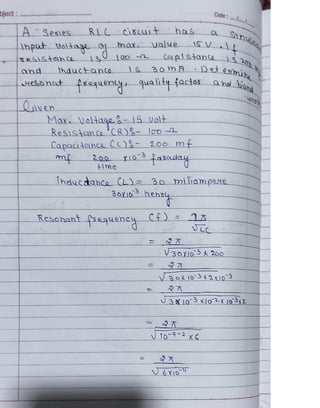 Subject :
Date :
A Series RLC circuit has a
input voltage of max. value 15V. If
resistance is 100 Ω capistance is 200 mf
and inductance is 30 mA. Determine
resonat frequency, quality factor and band
Given
Max. Voltage :- 15 volt
Resistance (R) :- 100 Ω
Capacitance (C) :- 200 mf
mf 200 ×10⁻³ faraday
time
Inductance (L) = 30 miliampere
30×10⁻³ henry
Resonant frequency (f) = 2π
√LC
= 2π
√30×10⁻³×200
= 2π
√30×10⁻³×2×10⁻³
= 2π
√3×10⁻³×10⁻²×10⁻³×2
= 2π
√10⁻⁹⁻²×6
= 2π
√6×10⁻¹¹